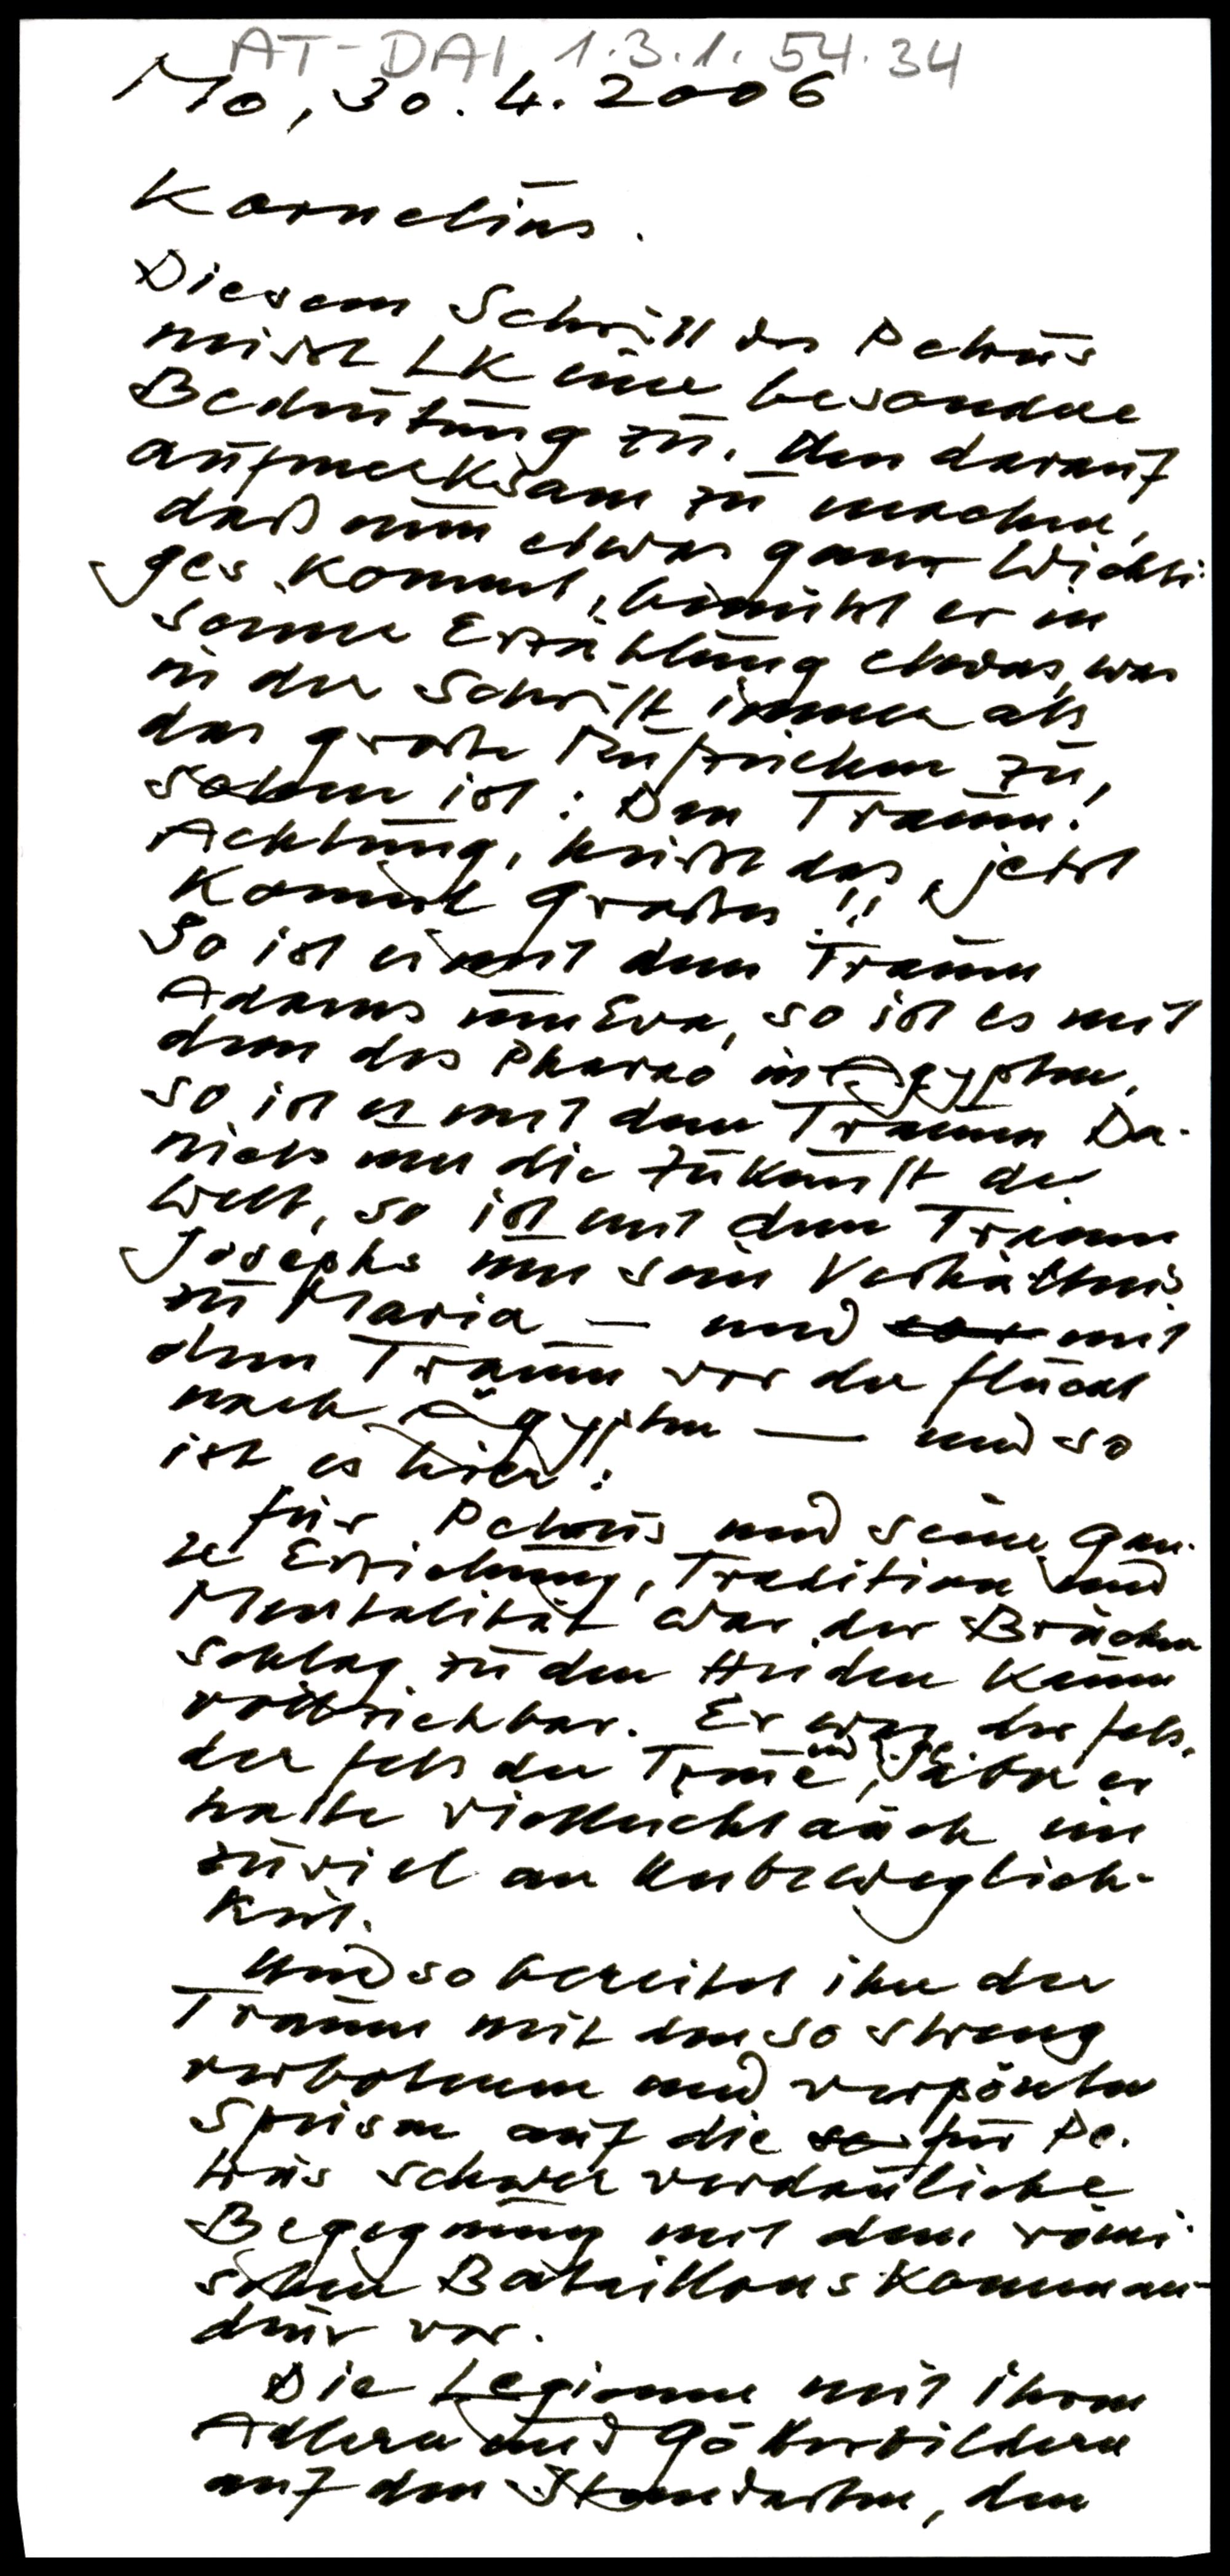 AT-DAI 1.3.1.54.34
Mo, 30.4.2006
Kornelius.
Diesem Schritt des Petrus
misst LK eine besondere
Bedeutung zu. Um darauf
aufmerksam zu machen,
daß nun etwas ganz Wichti-
ges kommt, benützt er in
seiner Erzählung etwas, was
in der Schrift immer als
das große Rufzeichen zu
sehen ist: Den Traum!
Achtung, heißt das, jetzt
kommt großes!!
So ist es mit dem Traum
Adams um Eva, so ist es mit
dem des Pharao in Ägypten,
so ist es mit dem Traum Da-
niels um die Zukunft der
Welt, so ist mit dem Traum
Josephs um sein Verhältnis
zu Maria – und mit
dem Traum vor der Flucht
nach Ägypten — und so
ist es hier:
Für Petrus und seine gan-
ze Erziehung, Tradition und
Mentalität war der Brücken
schlag zu den Heiden kaum
vollziehbar. Er war der Fels,
der Fels der Treue, und aber er
hatte vielleicht auch ein
zuviel an Unbeweglich-
keit.
Und so bereitet ihn der
Traum mit den so streng
verbotenen und verpönten
Speisen auf die für Pe-
trus schwer verdauliche
Begegnung mit dem römi-
schen Bataillonskomman-
deur vor.
Die Legionen mit ihren
Adlern und Götterbildern
auf den Standarten, den